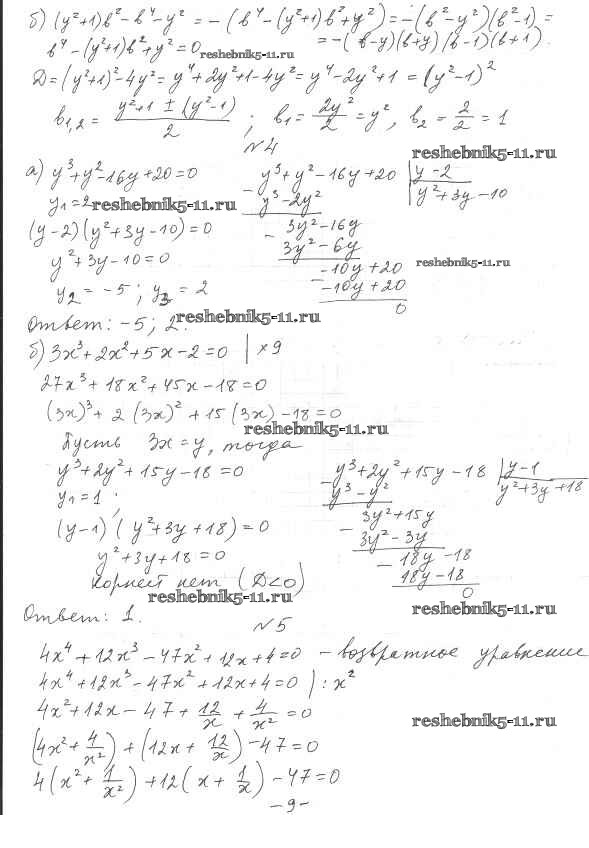 б) (y²+1)b² - b⁴ - y² = -(b⁴ - (y²+1)b² + y²) = -(b² - y²)(b² - 1) =
= -(b-y)(b+y)(b-1)(b+1).
b⁴ - (y²+1)b² + y² = 0
reshebnik5-11.ru
D = (y²+1)² - 4y² = y⁴ + 2y² + 1 - 4y² = y⁴ - 2y² + 1 = (y² - 1)²
b₁,₂ = (y²+1 ± (y²-1))/2 ; b₁ = 2y²/2 = y², b₂ = 2/2 = 1
№4
reshebnik5-11.ru
а) y³ + y² - 16y + 20 = 0
y₁ = 2
reshebnik5-11.ru
(y-2)(y² + 3y - 10) = 0
y² + 3y - 10 = 0
y₂ = -5 ; y₃ = 2
y³ + y² - 16y + 20 | y - 2
- y³ - 2y² | y² + 3y - 10
3y² - 16y
- 3y² - 6y
-10y + 20
- -10y + 20
0
reshebnik5-11.ru
reshebnik5-11.ru
Ответ: -5; 2.
б) 3x³ + 2x² + 5x - 2 = 0 | × 9
27x³ + 18x² + 45x - 18 = 0
(3x)³ + 2(3x)² + 15(3x) - 18 = 0
reshebnik5-11.ru
Пусть 3x = y, тогда
y³ + 2y² + 15y - 18 = 0
y₁ = 1 ;
(y-1)(y² + 3y + 18) = 0
y² + 3y + 18 = 0
Корней нет (D<0)
reshebnik5-11.ru
y³ + 2y² + 15y - 18 | y - 1
- y³ - y² | y² + 3y + 18
3y² + 15y
- 3y² - 3y
18y - 18
- 18y - 18
0
reshebnik5-11.ru
Ответ: 1.
№5
4x⁴ + 12x³ - 47x² + 12x + 4 = 0 - возвратное уравнение
4x⁴ + 12x³ - 47x² + 12x + 4 = 0 | : x²
4x² + 12x - 47 + 12/x + 4/x² = 0
reshebnik5-11.ru
(4x² + 4/x²) + (12x + 12/x) - 47 = 0
4(x² + 1/x²) + 12(x + 1/x) - 47 = 0
- 9 -